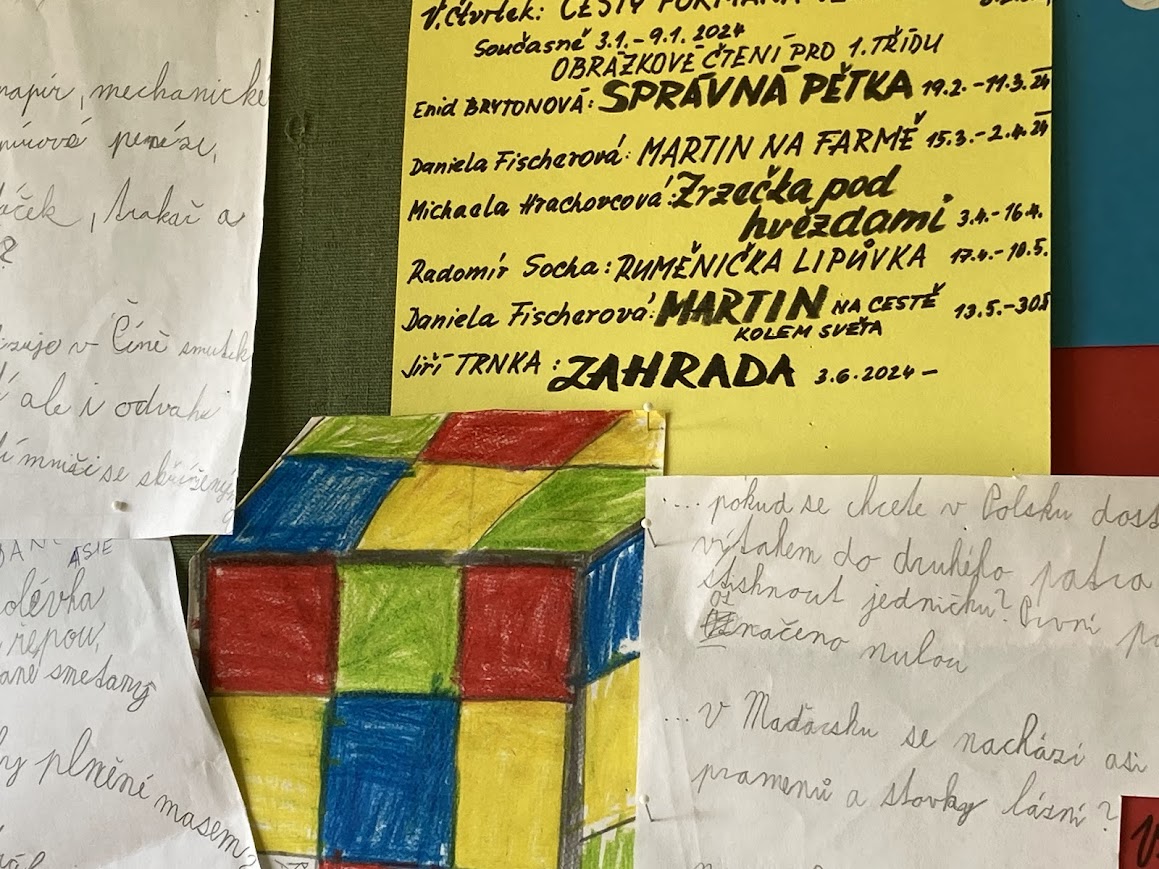 V. Čtvrtek: CESTY FORMANA
Současně 3.1. - 9.1. 2024
OBRÁZKOVÉ ČTENÍ PRO 1. TŘÍDU
Enid BRYTONOVÁ: SPRÁVNÁ PĚTKA 19.2. - 11.3. 24
Daniela Fischerová: MARTIN NA FARMĚ 15.3. - 2.4. 24
Michaela Hrachovcová: Zrzečka pod
hvězdami 3.4. - 16.4.
Radomír Socha: RUMĚNIČKA LIPŮVKA 17.4. - 10.5.
Daniela Fischerová: MARTIN NA CESTĚ
KOLEM SVĚTA 13.5. - 30.5
Jiří TRNKA: ZAHRADA 3.6.2024 -
papír, mechanické
peníze,
trakař a
?
v Číně smutek
ale i odvahu
mniši se skříženým
ASIE
polévka
řepou,
smetany
plnění masem?
... pokud se chcete v Polsku dost
výtahem do druhého patra
stisknout jedničku? První
označeno nulou
... v Maďarsku se nachází asi
pramenů a stovky lázní?
V.